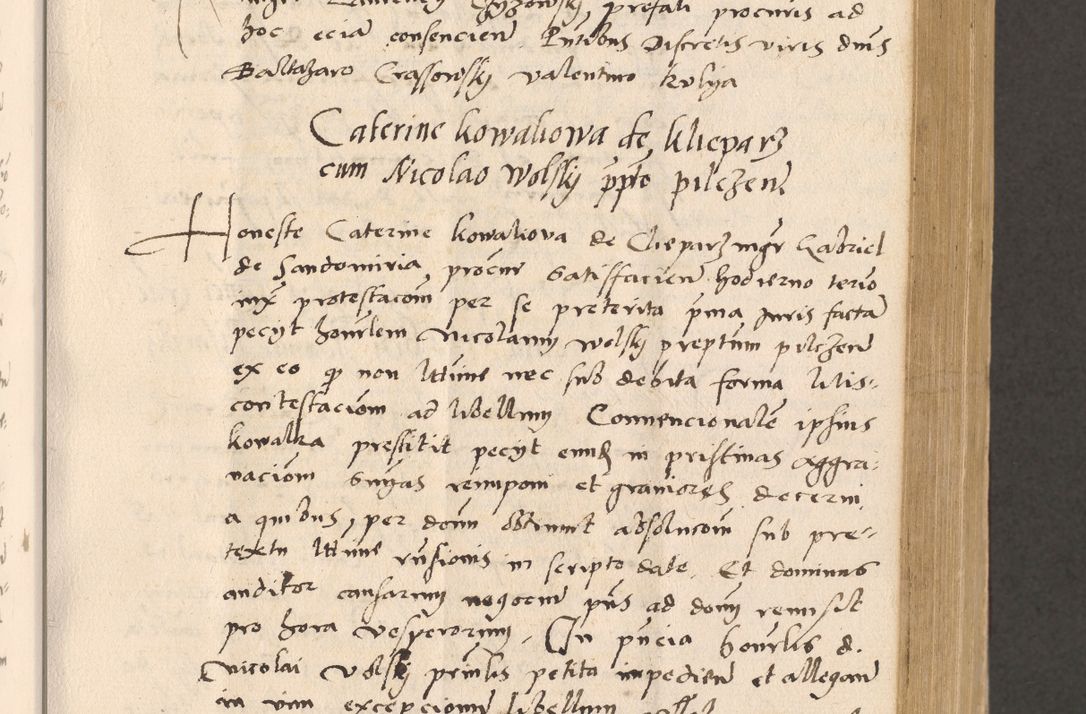 hoc ecia consencien Pntibus Discretis viris dnis
Baltazaro Crassowsky valentino kulya
Caterine kowaliowa de klieparz
cum Nicolao Wolsky ppto pilczen
Honeste Caterine kowaliova de Clieparz mgr Gabriel
de Sandomiria procur satisfacien hodierno termo
iux protestacom per se preterita pma Juris facta
pecyt honrlem Nicolaum wolsky preptum pilczen
ex eo q non lttime nec sub debita forma litis-
contestaciom ad libellum Convencionale ipsius
kowalka prestitit pecyt eund in pristinas Aggra-
vaciom snyas reimponi et graviores decerni
a quibus, per dom obtinuit absolucom sub pre-
textu lttime rnsionis in scripto date. Et dominus
auditor causarum negocm pns ad dom remisit
pro hora vesperorum. In pncia honrlis d.
Nicolai Volsky prinlis petita impedien et allegan
in vim excepcionum libellum